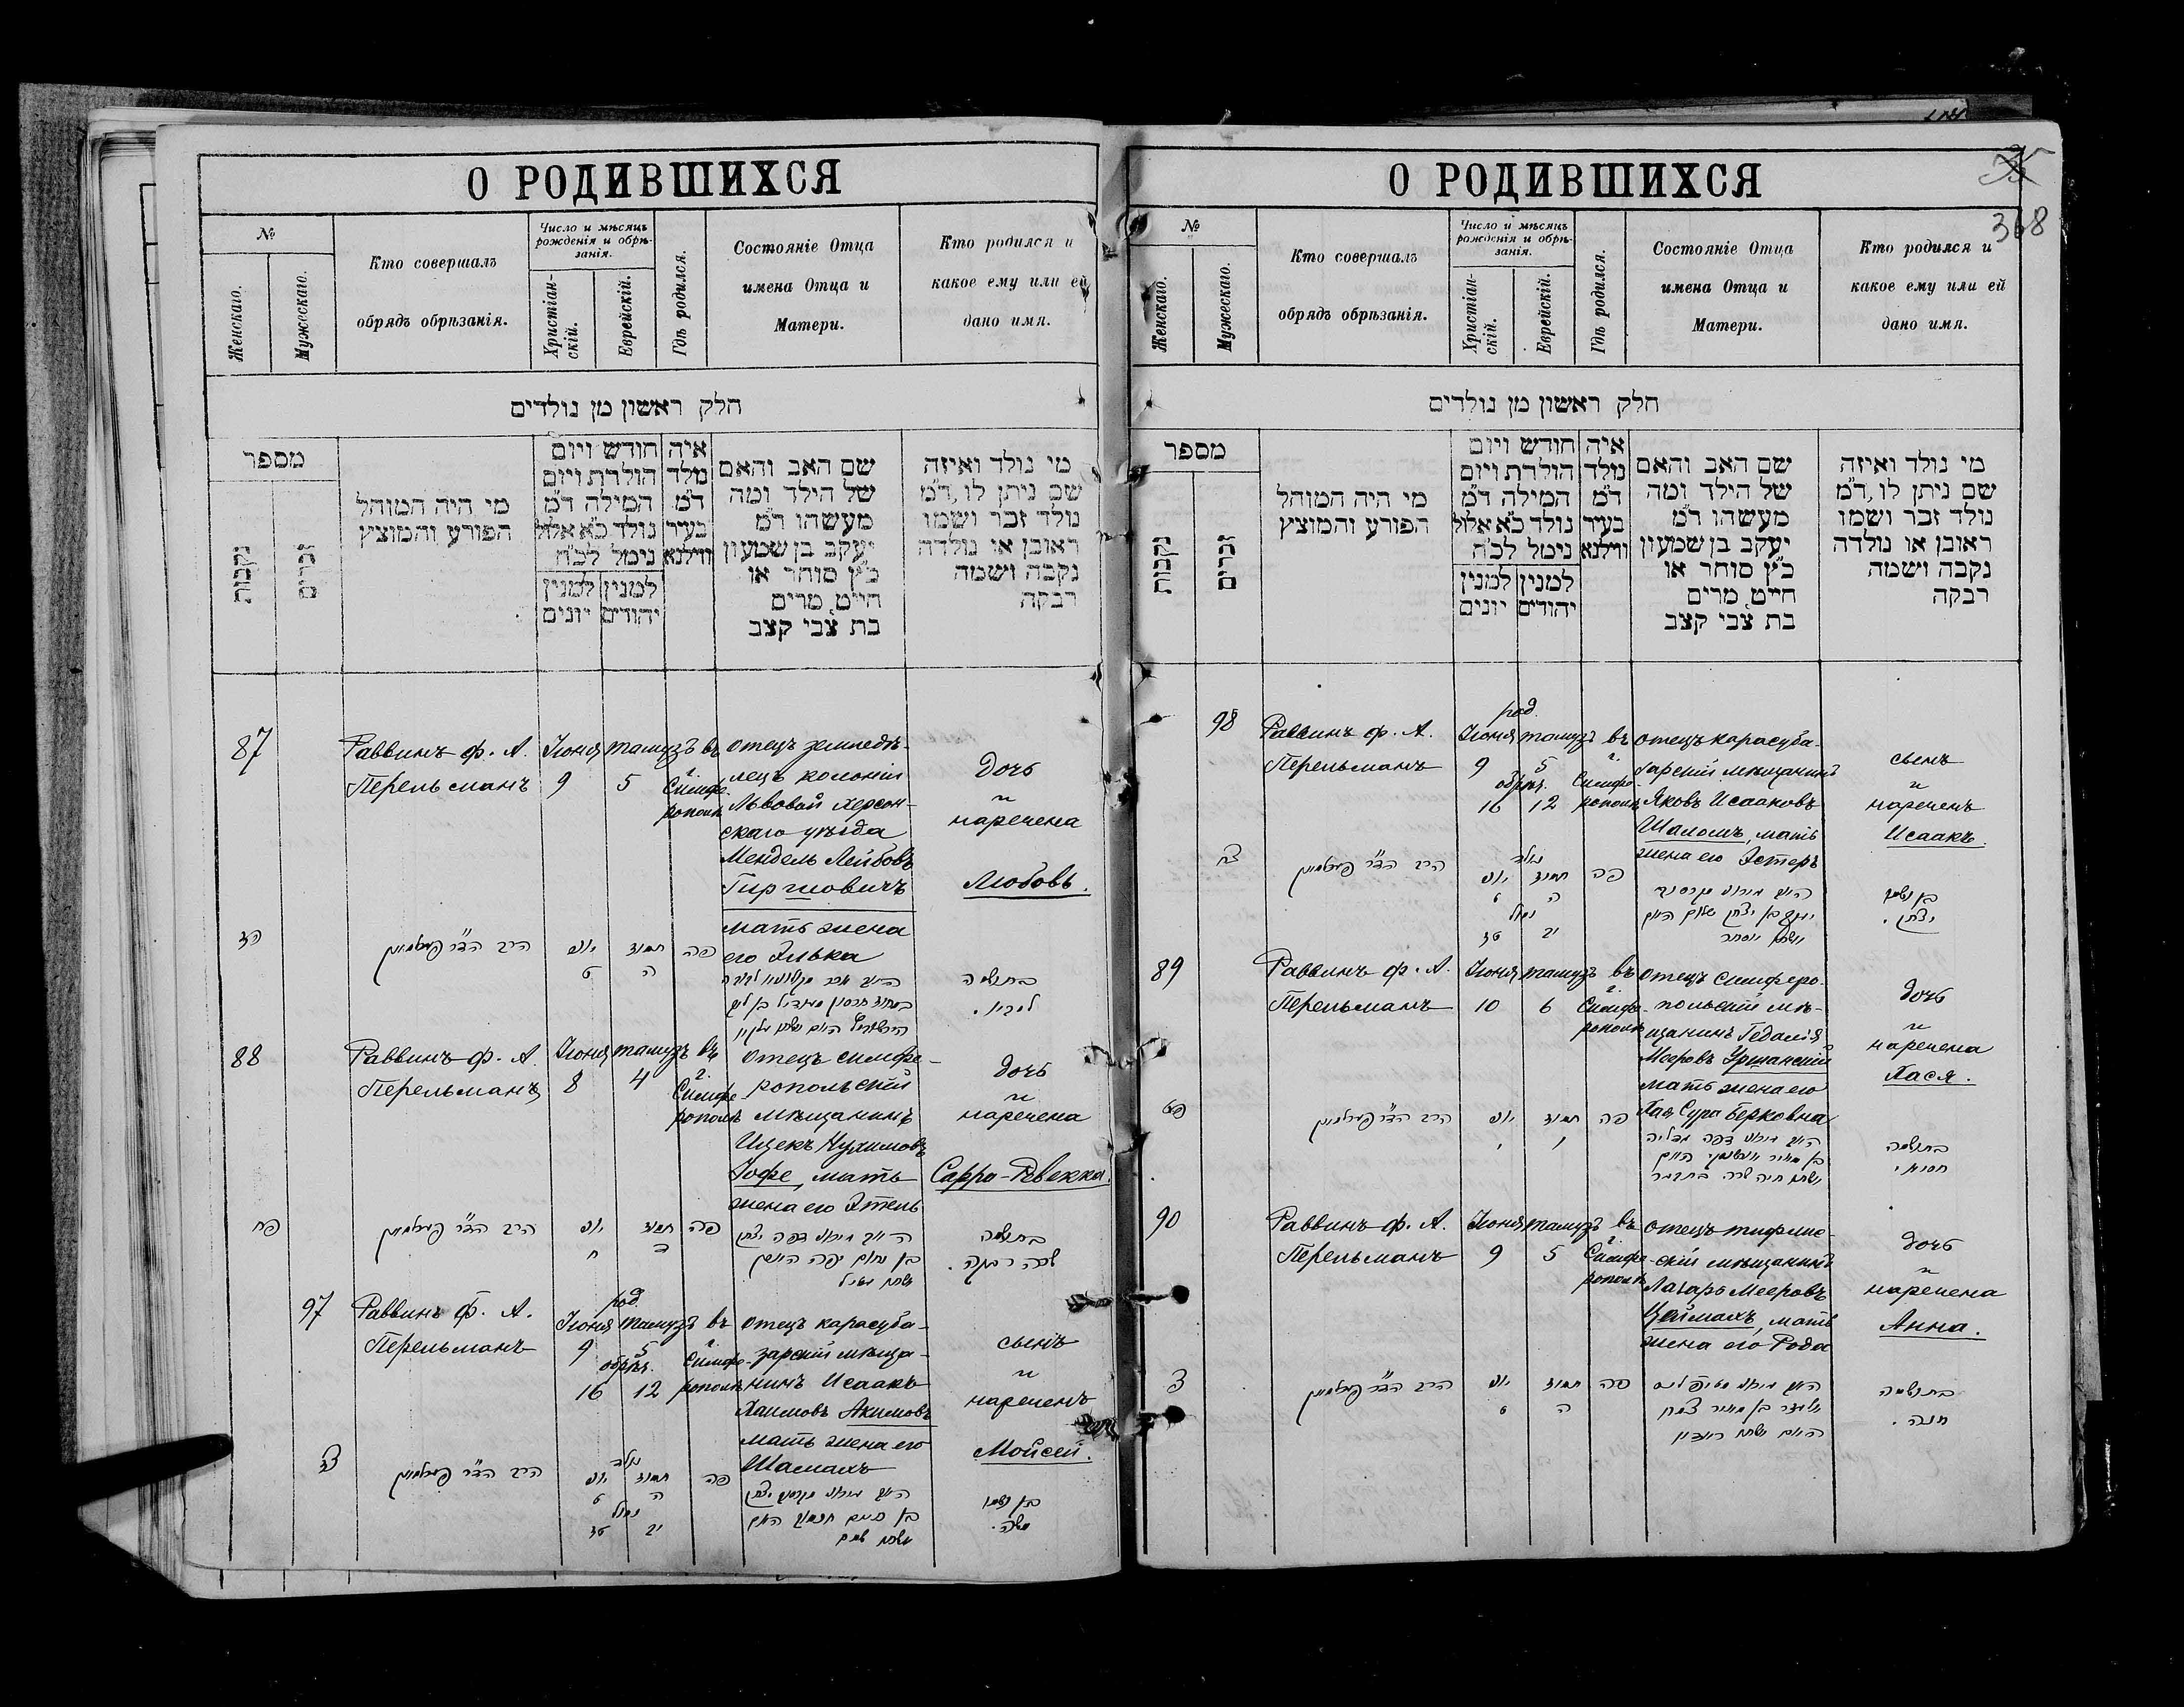 О РОДИВШИХСЯ
№
Женскаго.
Мужескаго.
Кто совершалъ
обрядъ обрѣзанія.
Число и мѣсяцъ
рожденія и обрѣ-
занія.
Христіан-
скій.
Еврейскій.
Гдѣ родился.
Состояніе Отца
имена Отца и
Матери.
Кто родился и
какое ему или ей
дано имя.
חלק ראשון מן נולדים
מספר
נקבות
זכרים
מי היה המוהל
הפורע והמוצץ
חודש ויום
הולדת ויום
המילה ד״מ
נולד כ״א אלול
נימל לכ״ח
למנין יהודים
למנין יונים
איה
נולד
ד״מ
בעיר
ווילנא
שם האב והאם
של הילד ומה
מעשהו ד״מ
יעקב בן שמעון
כ״ץ סוחר או
חייט, מרים
בת צבי קצב
מי נולד ואיזה
שם ניתן לו, ד״מ
נולד זכר ושמו
ראובן או נולדה
נקבה ושמה
רבקה
87
Раввинъ ф. А.
Перельманъ
Іюня тамузъ въ
9 5 г. Симфе-
рополѣ
отецъ землед­ѣ-
лецъ колоніи
Львовой херсон-
скаго уѣзда
Мендель Лейбовъ
Гиршовичъ
мать жена
его Элька
дочь
и
наречена
Любовь.
פז
הרב הד״ר פערלמאן
יוני תמוז פה
ט ה
88
Раввинъ ф. А.
Перельманъ
Іюня тамузъ въ
8 4 г. Симфе-
рополѣ
отецъ симфе-
ропольскій
мѣщанинъ
Ицекъ Нухимовъ
Іофе, мать
жена его Этель
дочь
и
наречена
Сарра-Ревекка.
פח
הרב הד״ר פערלמאן
יוני תמוז פה
ח ד
שרה רבקה.
97
Раввинъ ф. А.
Перельманъ
род.
Іюня тамузъ въ
9 5 г. Симфе-
обрѣз.
16 12 рополѣ
отецъ карасуба-
зарскій мѣща-
нинъ Исаакъ
Хаимовъ Акимовъ
мать жена его
Шамахъ
сынъ
и
нареченъ
Мойсей.
צז
הרב הד״ר פערלמאן
נולד
יוני תמוז פה
ט ה
נימול
טז יב
משה.
О РОДИВШИХСЯ
368
№
Женскаго.
Мужескаго.
Кто совершалъ
обрядъ обрѣзанія.
Число и мѣсяцъ
рожденія и обрѣ-
занія.
Христіан-
скій.
Еврейскій.
Гдѣ родился.
Состояніе Отца
имена Отца и
Матери.
Кто родился и
какое ему или ей
дано имя.
חלק ראשון מן נולדים
מספר
נקבות
זכרים
מי היה המוהל
הפורע והמוצץ
חודש ויום
הולדת ויום
המילה ד״מ
נולד כ״א אלול
נימל לכ״ח
למנין יהודים
למנין יונים
איה
נולד
ד״מ
בעיר
ווילנא
שם האב והאם
של הילד ומה
מעשהו ד״מ
יעקב בן שמעון
כ״ץ סוחר או
חייט, מרים
בת צבי קצב
מי נולד ואיזה
שם ניתן לו, ד״מ
נולד זכר ושמו
ראובן או נולדה
נקבה ושמה
רבקה
98
Раввинъ ф. А.
Перельманъ
род.
Іюня тамузъ въ
9 5 г. Симфе-
обрѣз.
16 12 рополѣ
отецъ карасуба-
зарскій мѣщанинъ
Яковъ Исааковъ
Шаломъ, мать
жена его Эстеръ
сынъ
и
нареченъ
Исаакъ.
צח
הרב הד״ר פערלמאן
נולד
יוני תמוז פה
ט ה
נימול
טז יב
יצחק.
89
Раввинъ ф. А.
Перельманъ
Іюня тамузъ въ
10 6 г. Симфе-
рополѣ
отецъ симферо-
польскій мѣ-
щанинъ Гедалія
Мееровъ Уршанскій
мать жена его
Хая Сура Берковна
дочь
и
наречена
Хася.
פט
הרב הד״ר פערלמאן
יוני תמוז פה
י ו
90
Раввинъ ф. А.
Перельманъ
Іюня тамузъ въ
9 5 г. Симфе-
рополѣ
отецъ тифлис-
скій мѣщанинъ
Лазарь Мееровъ
Цеймахъ, мать
жена его Рода
дочь
и
наречена
Анна.
צ
הרב הד״ר פערלמאן
יוני תמוז פה
ט ה
חנה.